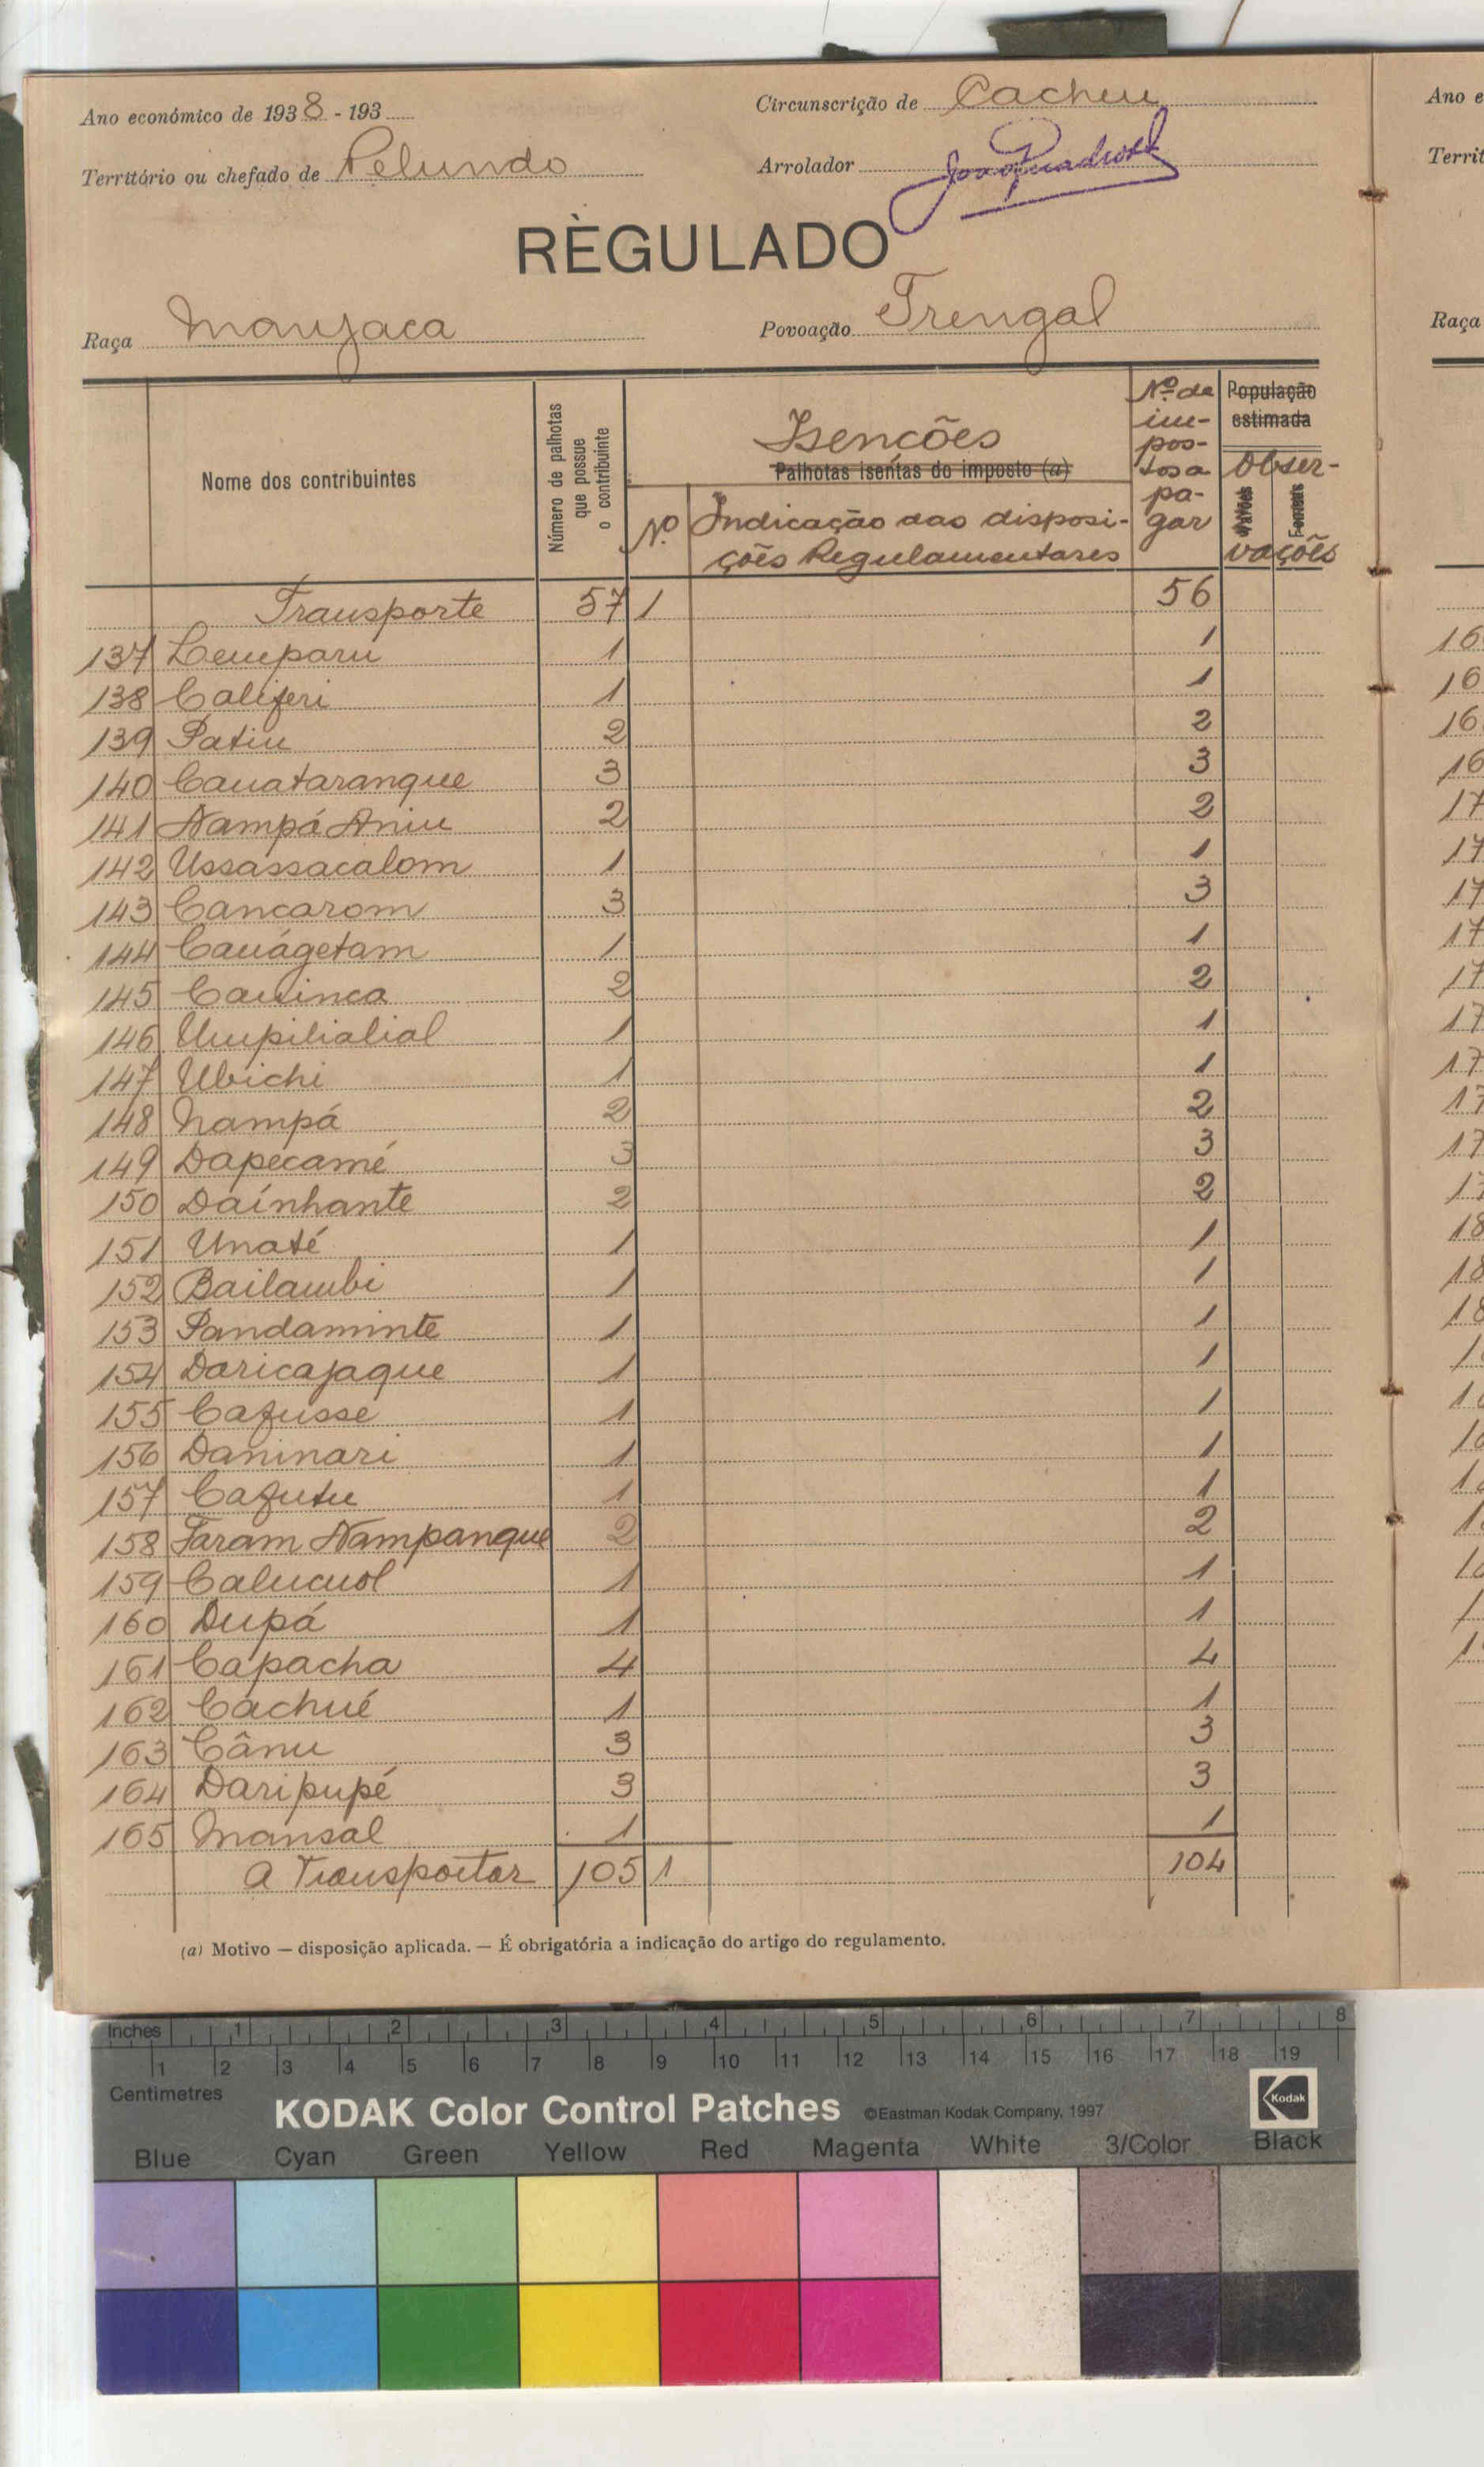 Ano económico de 1938 - 193
Circunscrição de Cacheu
Território ou chefado de Pelundo
Arrolador
RÈGULADO
Raça Manjaca
Povoação Trengal
Nome dos contribuintes
Número de palhotas que possue o contribuinte
Isenções
Palhotas isentas do imposto (a)
Nº
Indicação das disposi-
ções Regulamentares
Nº de im-
pos-
tos a
pa-
gar
População
estimada
Obser-
vações
Varões
Femeas
Transporte 57 1 56
137 Lemparu 1 1
138 Califeri 1 1
139 Patiu 2 2
140 Cauataranque 3 3
141 Nampá Aniu 2 2
142 Ussássacalom 1 1
143 Cancarom 3 3
144 Cauágetam 1 1
145 Cauinca 2 2
146 Umpilialial 1 1
147 Ubichi 1 1
148 Nampá 2 2
149 Dapecamé 3 3
150 Daínhante 2 2
151 Unaté 1 1
152 Bailambi 1 1
153 Pandaminte 1 1
154 Daricajaque 1 1
155 Cafusse 1 1
156 Daninari 1 1
157 Cafutu 1 1
158 Faram Nampanque 2 2
159 Calucuol 1 1
160 Dupá 1 1
161 Capacha 4 4
162 Cachué 1 1
163 Cânu 3 3
164 Daripupé 3 3
165 Mansal 1 1
A Transportar 105 1 104
(a) Motivo — disposição aplicada. — É obrigatória a indicação do artigo do regulamento.
Ano e
Territ
Raça
Inches 1 2 3 4 5 6 7 8
1 2 3 4 5 6 7 8 9 10 11 12 13 14 15 16 17 18 19
Centimetres
KODAK Color Control Patches ©Eastman Kodak Company, 1997 Kodak
Blue Cyan Green Yellow Red Magenta White 3/Color Black